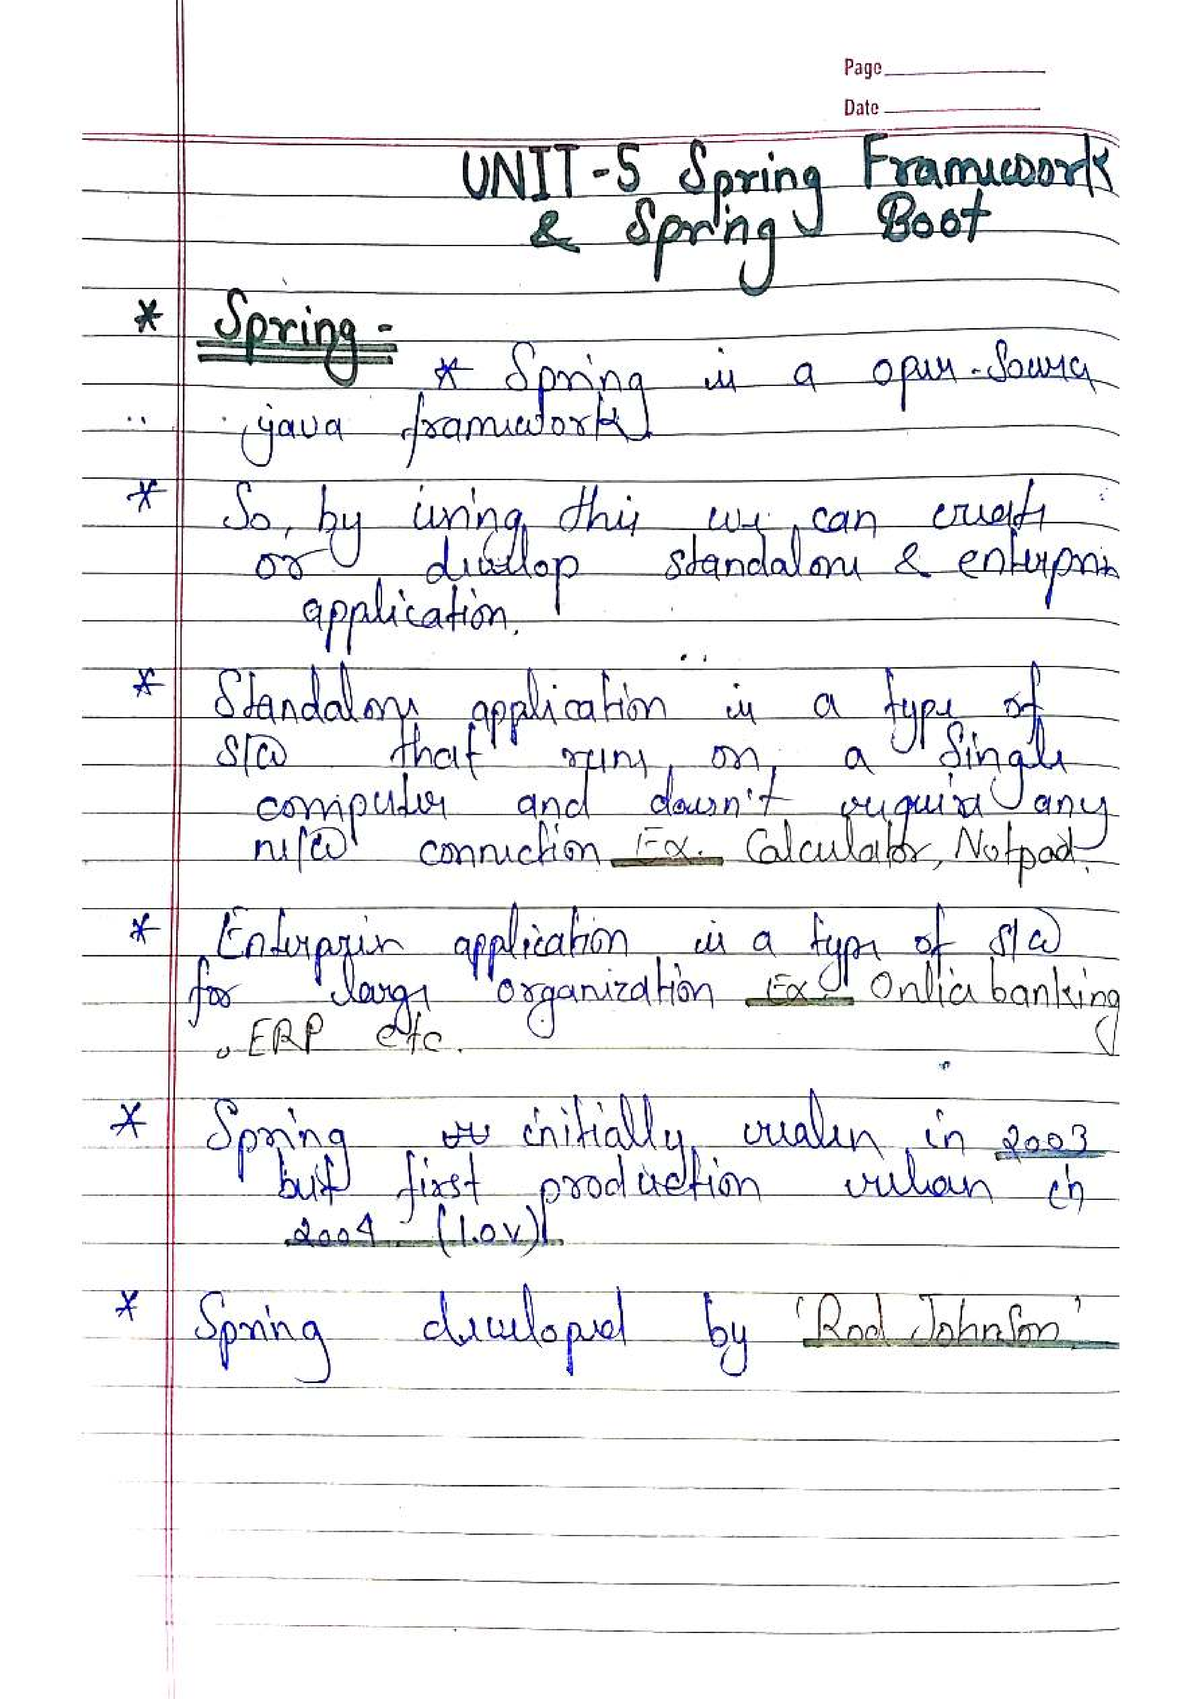 Page
Date
UNIT-5 Spring Framework
& Spring Boot
* Spring -
* Spring is a open-source
java framework.
* So, by using this we can create
or develop standalone & enterprise
application.
* Standalone application is a type of
s/w that runs on a single
computer and doesn't require any
n/w connection Ex. Calculator, Notpad.
* Enterprise application is a type of s/w
for large organization Ex. banking
, ERP etc.
* Spring initially release in 2003
but first production release in
2004 (1.0v).
* Spring developed by 'Rod Johnson'